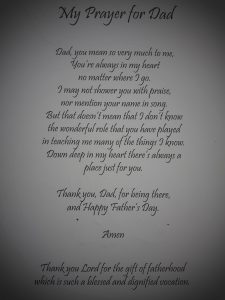 My Prayer for Dad
Dad, you mean so very much to me,
You're always in my heart
no matter where I go.
I may not shower you with praise,
nor mention your name in song.
But that doesn't mean that I don't know
the wonderful role that you have played
in teaching me many of the things I know.
Down deep in my heart there's always a
place just for you.
Thank you, Dad, for being there,
and Happy Father's Day.
Amen
Thank you Lord for the gift of fatherhood
which is such a blessed and dignified vocation.